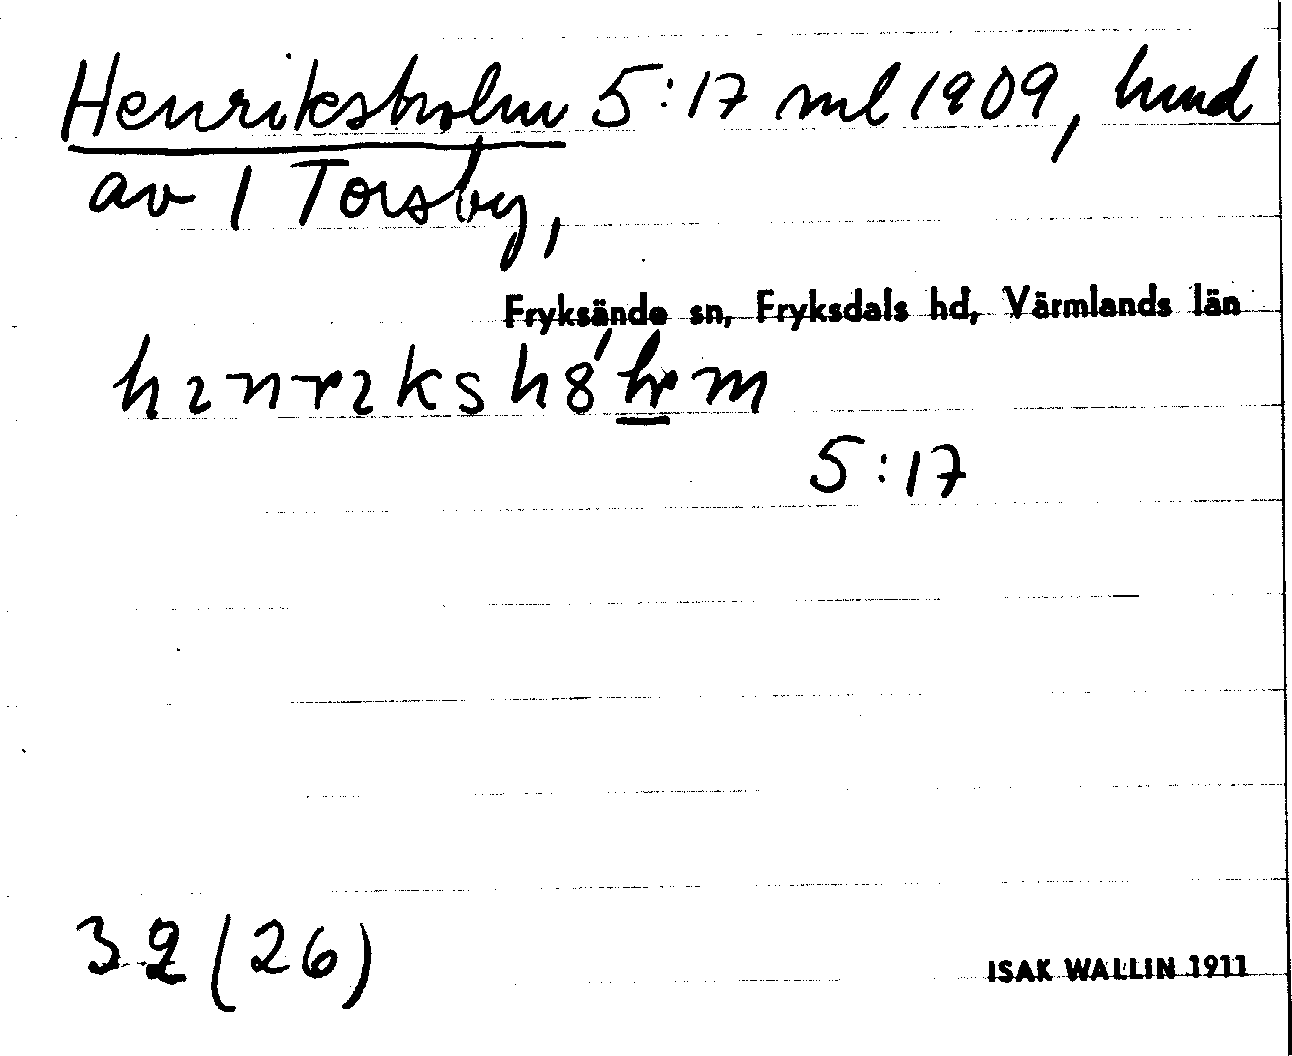 Henriksholm 5:17 ml 1909, hmd
av 1 Torsby,
Fryksände sn, Fryksdals hd, Värmlands län
5:17
32 (26)
ISAK WALLIN 1911